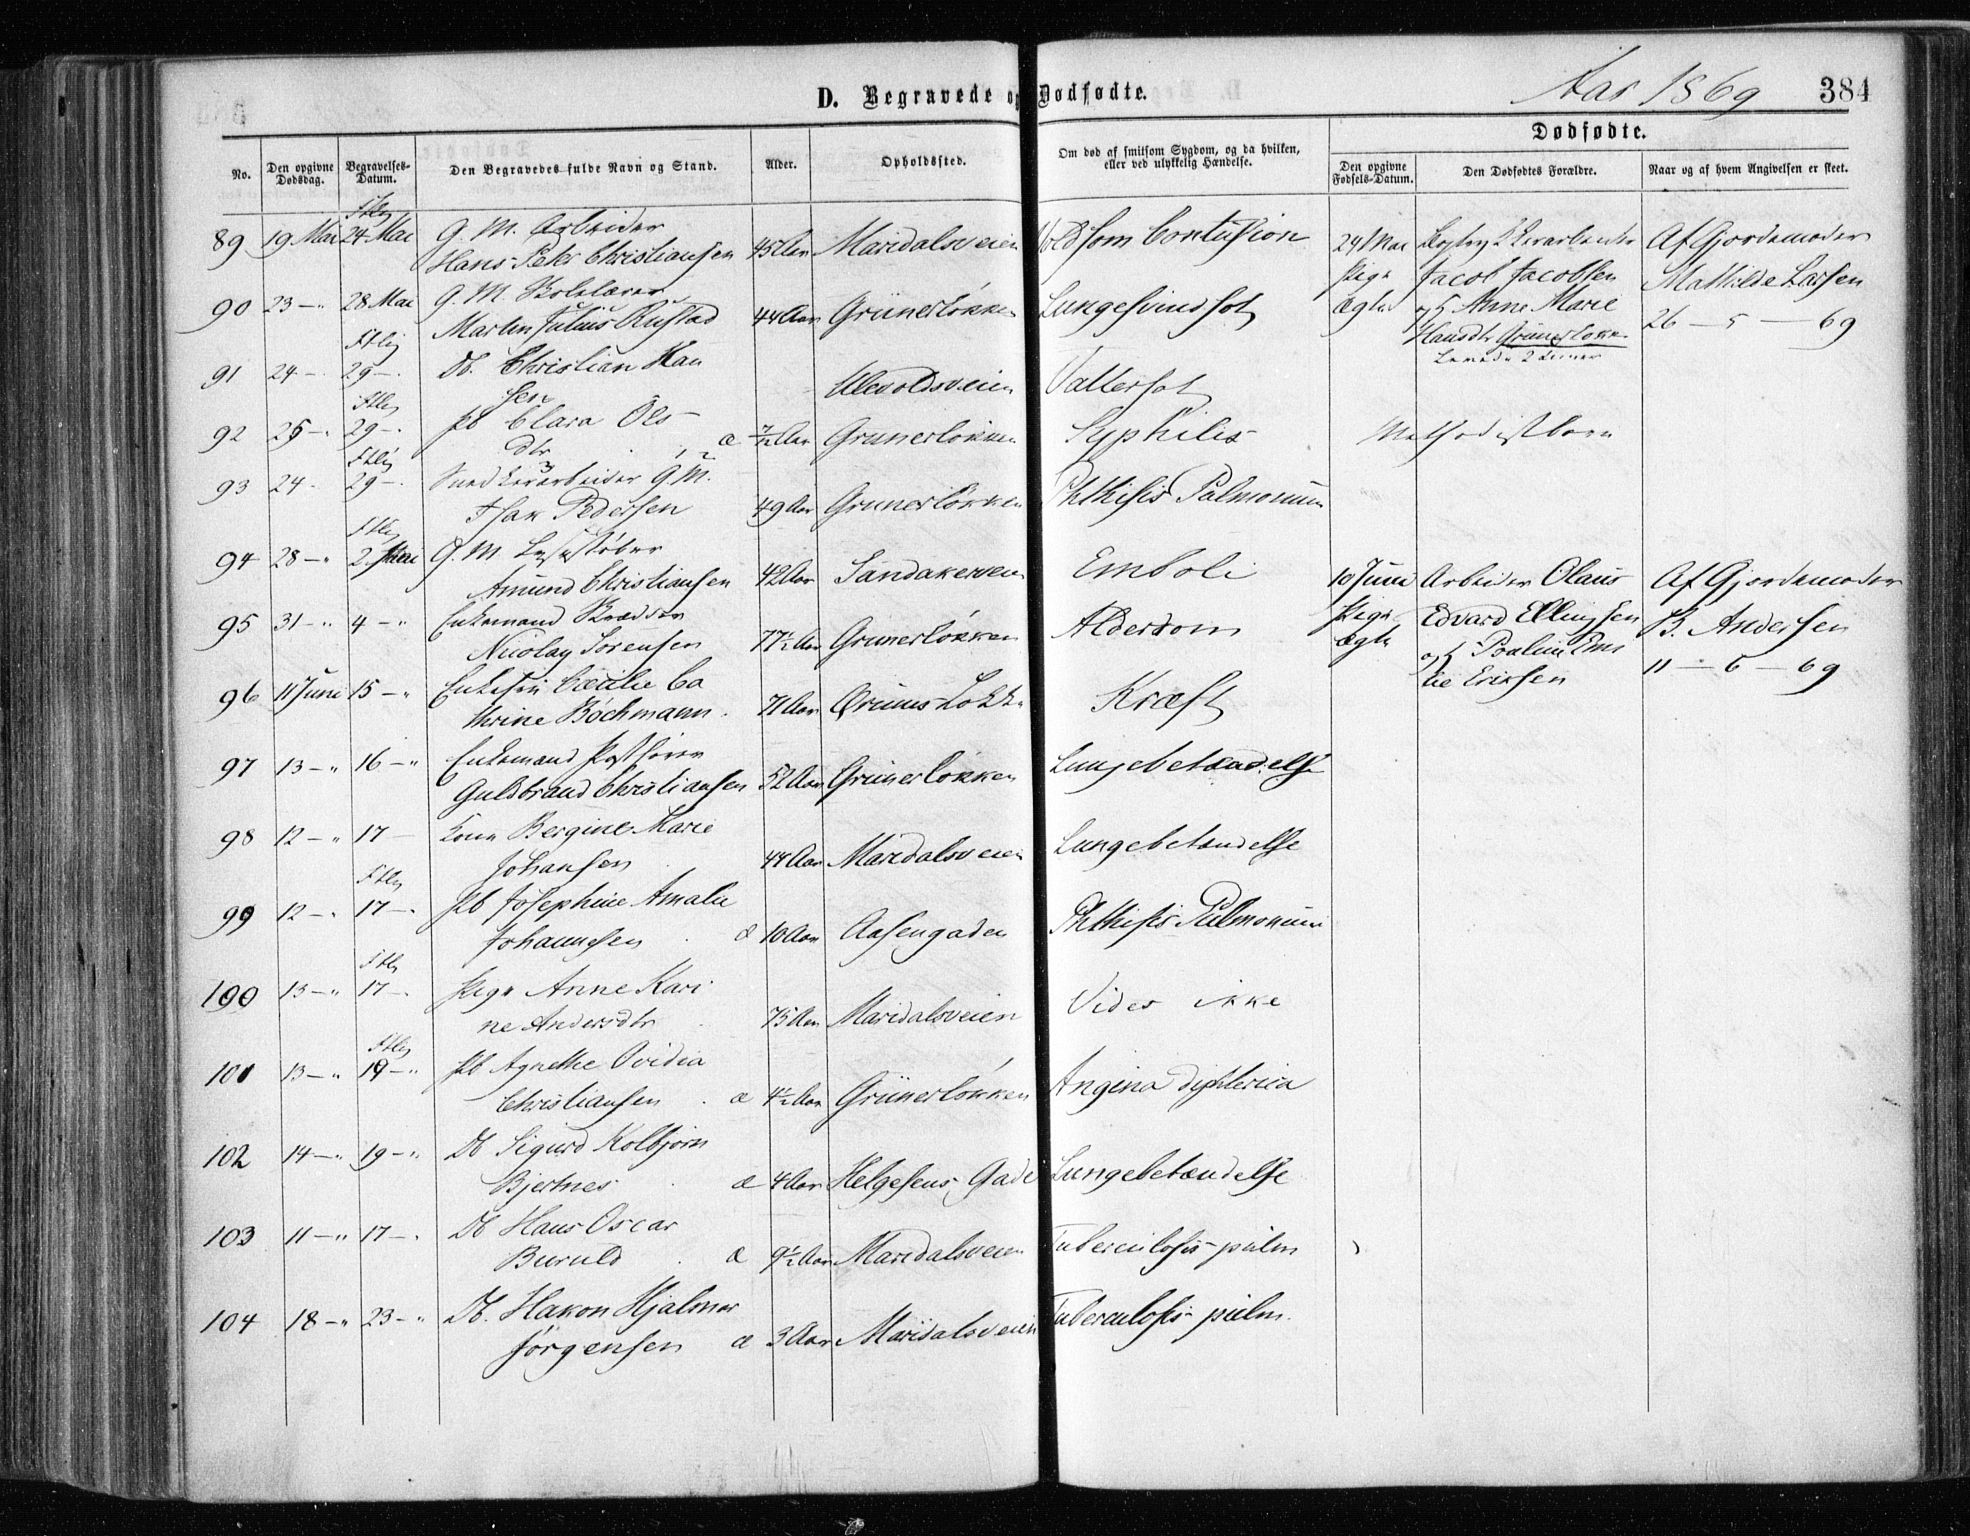 D. Begravede og Dødfødte.
Aar 1869
384
No.
Den opgivne Dødsdag.
Begravelses-Datum.
Den Begravedes fulde Navn og Stand.
Alder.
Opholdssted.
Om død af smitsom Sygdom, og da hvilken, eller ved ulykkelig Hændelse.
Dødfødte.
Den opgivne Fødsels-Datum.
Den Dødfødtes Forældre.
Naar og af hvem Angivelsen er skeet.
89 19 Mai 24 Mai G. M. Arbeider
Hans Peter Christiansen 45 Aar Maridalsveien Voldsom Contusion
90 23 - " 28 Mai G. M.
Martin Julius Rustad 44 Aar Grünerløkken Lungesvindsot
91 24 - 29 - Db. Christian Han
sen Ulevoldsveien Vattersot
92 25 - " 29 - Pb Clara Ols
dtr æ 7/12 Aar Grunerløkken Syphilis
Methodistbarn
93 24 - 29 - Snedkerarbeider G. M.
Isak Pedersen 49 Aar Grunerløkken Phthisis Pulmonum
94 28 - " 2. Juni G. M. Lysestøber
Amund Christiansen 42 Aar Sandakerveien Emboli
95 31 - " 4 - " Enkemand
Nicolay Sørensen 77½ Aar Grunerløkken Alderdom
96 11 Juni 15 - " Enkefru Cæcilie Ca
thrine Bøchmann. 71 Aar Grüners Løkke Kræft
97 13 - " 16 - " Enkemand Postfører
Guldbrand Christiansen 52 Aar Grünerløkken Lungebetændelse
98 12 - " 17 - Kone Bergine Marie
Johansen 44 Aar Maridalsveien Lungebetændelse
99 12 - " 17 - Pb Josephine Amalie
Johannesen æ 10 Aar Aasengaden Phthisis Pulmonum
100 13 - " 17 - Pige Anne Kari
ne Andersdtr 75 Aar Maridalsveien Vides ikke
101 13 - " 19 - " Pb Agnethe Ovidia
Christiansen æ 4½ Aar Grünerløkken Angina dipterica
102 14 - " 19 - " Db Sigurd Kolbjørn
Bjertnes æ 4 Aar Helgesens Gade Lungebetændelse
103 11 - " 17 - Db Hans Oscar
Buruld æ 9½ Aar Maridalsveien Tuberculosis pulm
104 18 - " 23 - " Db. Hakon Hjalmar
Jörgensen æ 3 Aar Maridalsveien Tuberculosis pulm.
24 Mai
Pige
Ægte
Jacob Jacobsen
og Anne Marie
Hansdtr Grünerløkken
Levede 2 Timer
Af Gjordemoder
Mathilde Larsen
26 - 5 - 69
10 Juni
Pige
Ægte
Arbeider Olaus
Edvard Ellingsen
og Pauline Emi
lie Eriksen
Af Gjordemoder
B. Andersen
11 - 6 - 69